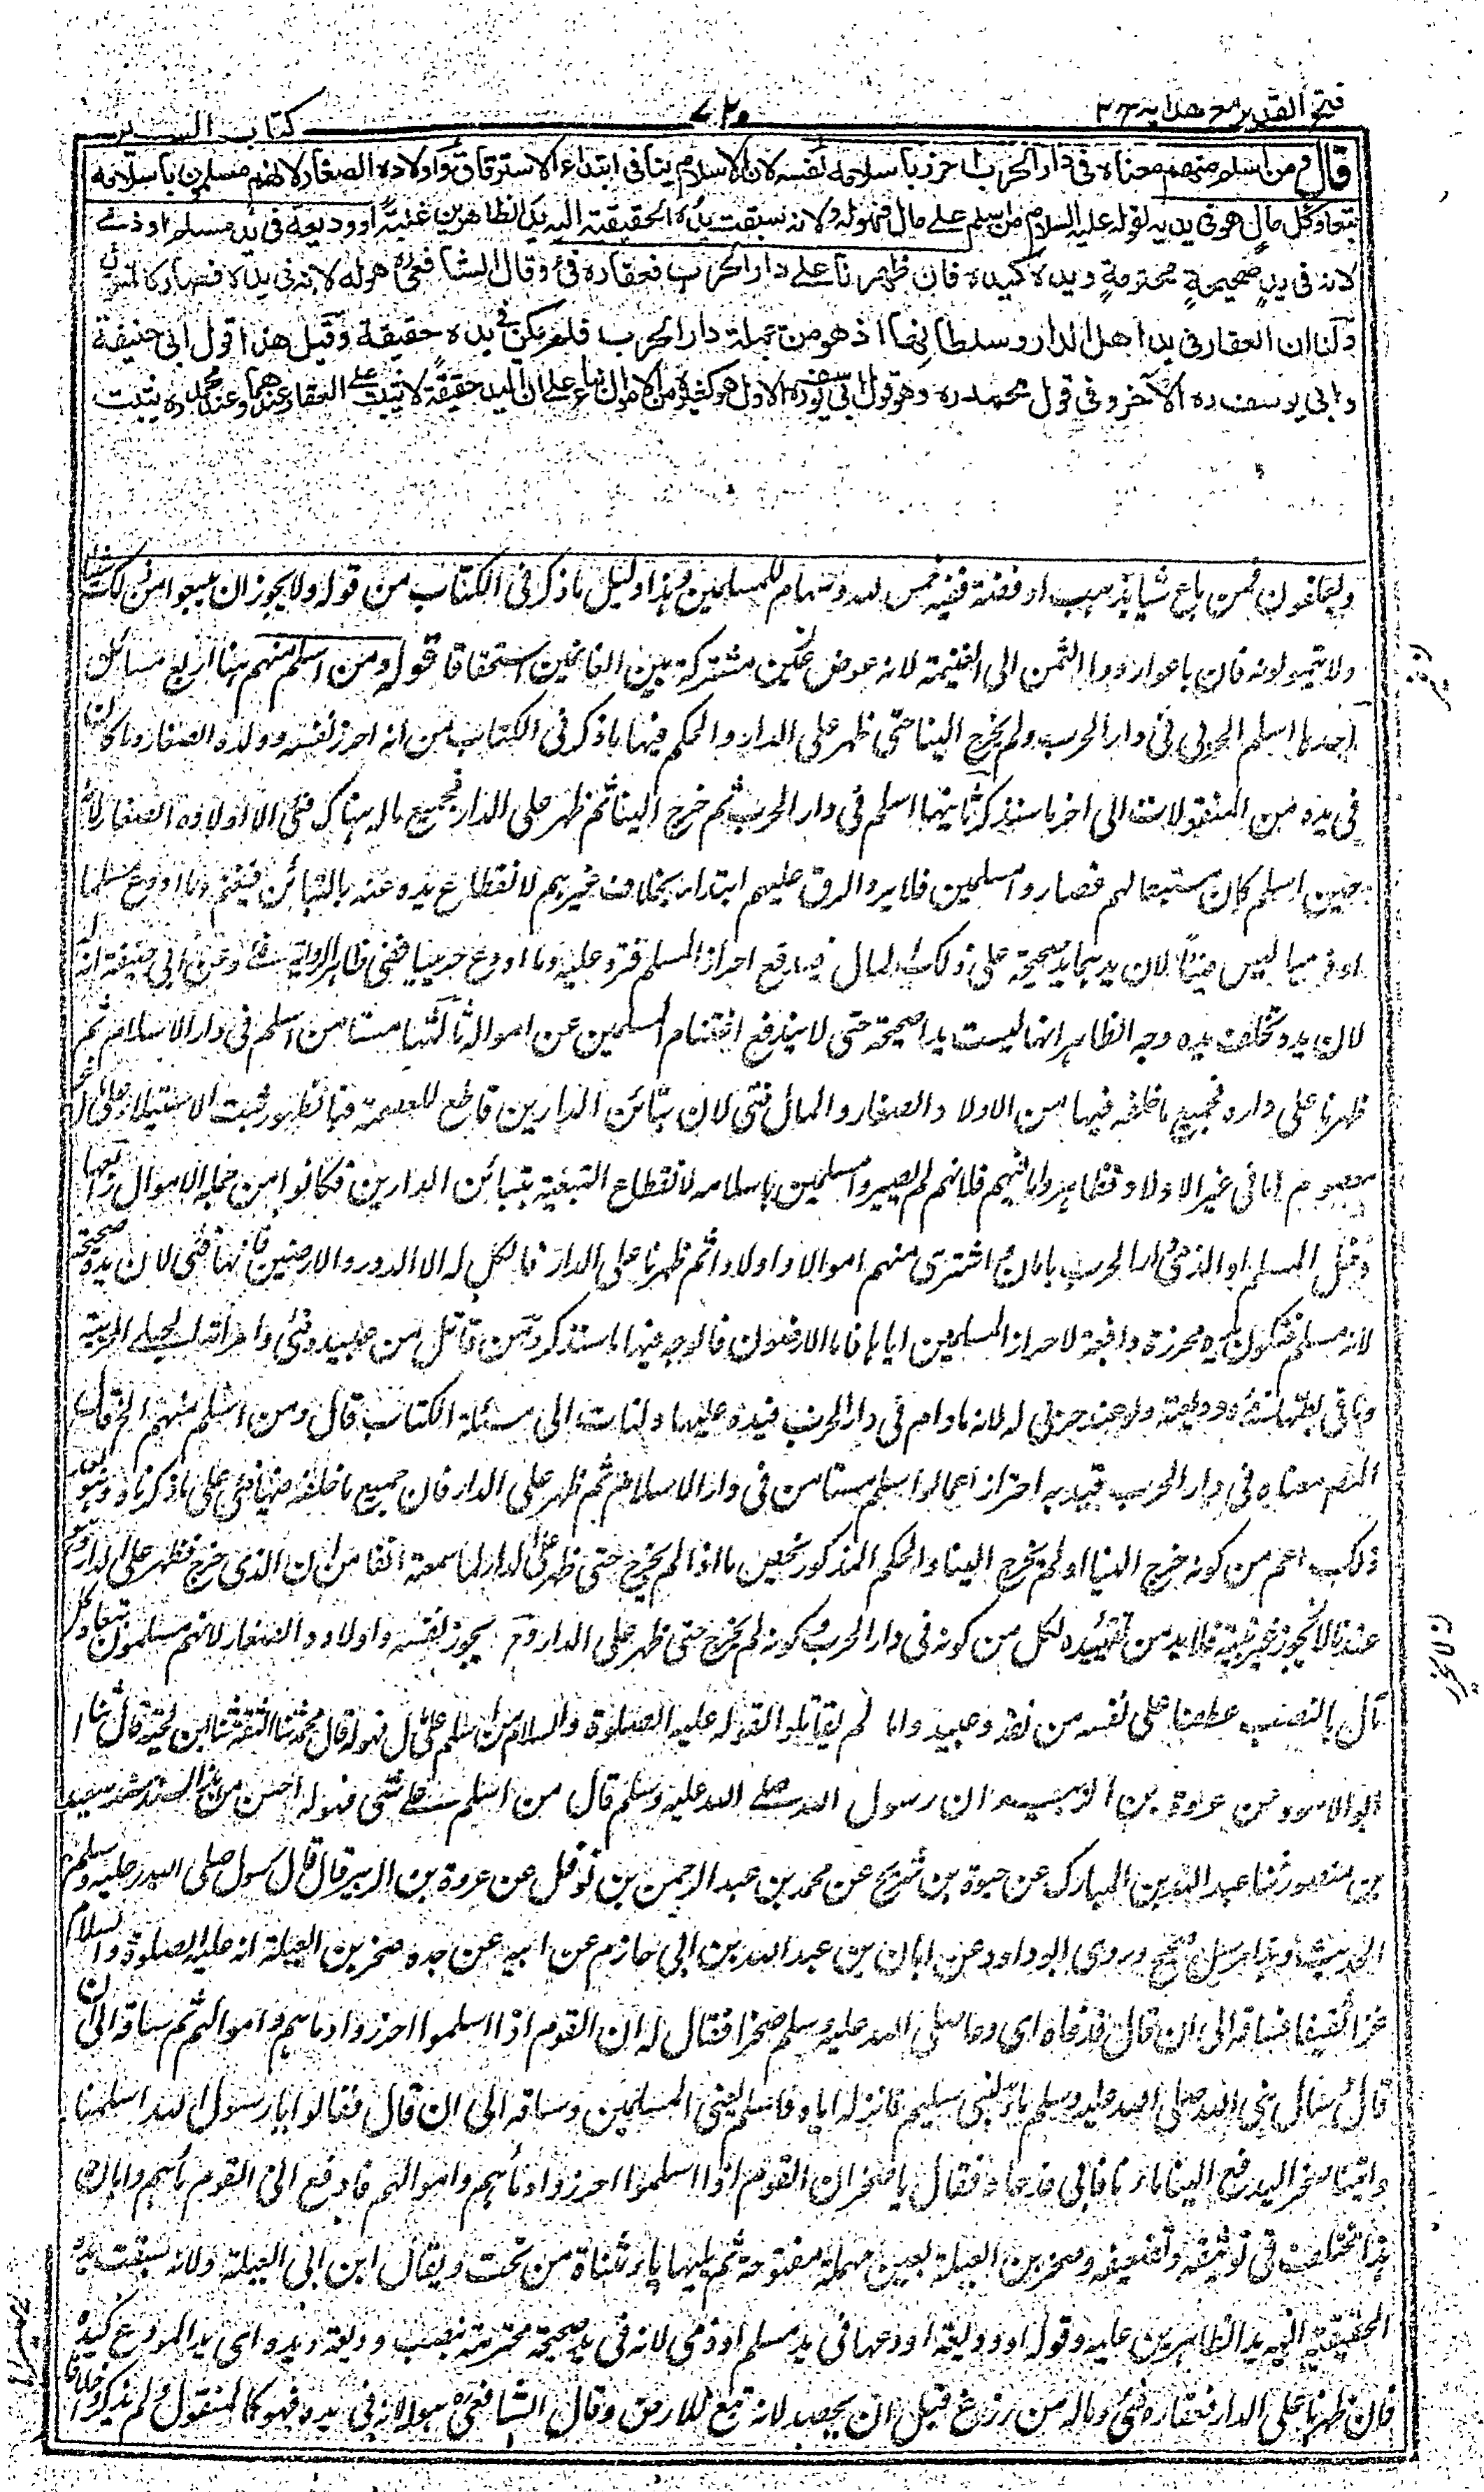 فتح القدير مع هدايه ج ٢
٧٢٠
كتاب السير
قال ومن اسلم منهم معناه في دار الحرب احرز باسلامه نفسه لان الاسلام ينافي ابتداء الاسترقاق واولاده الصغار لانهم مسلمون باسلامه
تبعا وكل مال هو في يديه لقوله عليه السلام من اسلم على مال فهو له ولانه سبقت يده الحقيقية اليه يد الظاهرين عليه او وديعة في يد مسلم او ذمي
لانه في يد صحيحة محترمة ويده كيده فان ظهرنا على دار الحرب فعقاره فئ وقال الشافعي ره هو له لانه في يده فصار كالمنقول
ولنا ان العقار في يد اهل الدار وسلطانها اذ هو من جملة دار الحرب فلم يكن في يده حقيقة وقيل هذا قول ابي حنيفة
وابي يوسف ره الآخر وفي قول محمد ره وهو قول ابي يوسف ره الاول هو كغيره من الاموال بناء على ان اليد حقيقة لا تثبت على العقار عندهما وعند محمد ره تثبت
فمن باع شيا بذهب او فضة ففيه خمس لله وسهام للمسلمين وهذا دليل ما ذكر في الكتاب من قوله ولا يجوز ان يبيعوا من ذلك شيئا
ولا يتمولونه فان باعوا ردوا الثمن الى الغنيمة لانه عوض عين مشتركة بين الغانمين استحقاقا قوله ومن اسلم منهم هنا اربع مسائل
احدها اسلم الحربي في دار الحرب ولم يخرج الينا حتى ظهر على الدار والحكم فيها ما ذكر في الكتاب من انه احرز نفسه وولده الصغار وما كان
في يده من المنقولات الى اخر ما سنذكر ثانيتها اسلم في دار الحرب ثم خرج الينا ثم ظهر على الدار فجميع ماله هناك فئ الا اولاده الصغار لانه
حين اسلم كان مستتبعا لهم فصاروا مسلمين فلا يرد الرق عليهم ابتداء بخلاف غيرهم لانقطاع يده عنه بالتباين فيغنم وما اودع مسلما
او ذميا ليس فيئا لان يدهما يد صحيحة على ذلك المال فيدفع احراز المسلم فترد عليه وما اودع حربيا ففي ظاهر الرواية فئ وعن ابي حنيفة انه له
لان يده تخلف يده وجه الظاهر انها ليست يدا صحيحة حتى لا يندفع اغتنام المسلمين عن امواله ثالثتها مستامن اسلم في دار الاسلام ثم
ظهرنا على داره فجميع ما خلفه فيها من الاولاد الصغار والمال فئ لان تباين الدارين قاطع للعصمة فبالظهور ثبت الاستيلاء على مال غير
معصوم اما في غير الاولاد فظاهر واما فيهم فلانهم لم يصيروا مسلمين باسلامه لانقطاع التبعية بتباين الدارين فكانوا من جملة الاموال رابعها
دخل المسلم او الذمي دار الحرب بامان واشترى منهم اموالا واولادا ثم ظهرنا على الدار فالكل له الا الدور والارضين فانها فئ لان يده صحيحة
لانه مسلم فتكون يده محرزة دافعة لاحراز المسلمين اياها فاما الارضون فالوجه فيها ما سنذكر ومن قاتل من عبيده فئ وامراته الحبلى الحربية
ولا عند حربي له لانه ما دام في دار الحرب فيده عليها ولنات الى مسئلة الكتاب قال ومن اسلم منهم الخ قال
المصنف معناه في دار الحرب قيد به احترازا عما لو اسلم مستامن في دار الاسلام ثم ظهر على الدار فان جميع ما خلفه فيها فئ على ما ذكرناه
ذلك اعم من كونه خرج الينا او لم يخرج الينا والحكم المذكور يخص ما اذا لم يخرج حتى ظهر على الدار لما سمعته انفا من ان الذي خرج فظهر على الدار وهو
عندنا لا يحوز غير طفله فلابد من تقييده لكل من كونه في دار الحرب وكونه لم يخرج حتى ظهر على الدار وهم يحوز نفسه واولاده الصغار لانهم مسلمون تبعا وكل
مال بالنصب عطفا على نفسه من نقد وعبيد واماء لم يقاتلوا لقوله عليه الصلوة والسلام من اسلم على مال فهو له قال محمد ثنا الثقة ثنا ابن لهيعة قال ثنا
ابو الاسود عن عروة بن الزبير ان رسول الله صلى الله عليه وسلم قال من اسلم على شئ فهو له احسن من هذا السند سند سعيد
بن منصور ثنا عبد الله بن المبارك عن حيوة بن شريح عن محمد بن عبد الرحمن بن نوفل عن عروة بن الزبير قال قال رسول صلى الله عليه وسلم
الحديث وهذا مرسل صحيح وروى ابو داود عن ابان بن عبد الله بن ابي حازم عن ابيه عن جده صخر بن العيلة انه عليه الصلوة والسلام
غزا ثقيفا فساقه الى ان قال فدعاه اي دعا صلى الله عليه وسلم صخرا فقال له ان القوم اذا اسلموا احرزوا دماءهم واموالهم ثم ساقه الى ان
قال سال نبي الله صلى الله عليه وسلم ماء لبني سليم فانزله اياه فاسلم يعني المسلمين وساقه الى ان قال فقالوا يا رسول الله اسلمنا
واتينا صخرا ليدفع الينا ماءنا فابى فدعاه فقال يا صخر ان القوم اذا اسلموا احرزوا دماءهم واموالهم فادفع الى القوم ماءهم وابان
هذا مختلف في توثيقه وتضعيفه وصخر بن العيلة بعين مهملة مفتوحة ثم يليها ياء مثناة من تحت ويقال ابن ابي العيلة ولانه سبقت يده
الحقيقية اليه يد الظاهرين عليه وقوله او وديعة اودعها في يد مسلم او ذمي لانه في يد صحيحة محترمة بنصب وديعة ويده اي يد المودع كيده
فان ظهرنا على الدار فعقاره فئ وماله من زرع قبل ان يحصد لانه تبع للارض وقال الشافعي ره هو له لانه في يده فهو كالمنقول ولم يذكروا خلافا